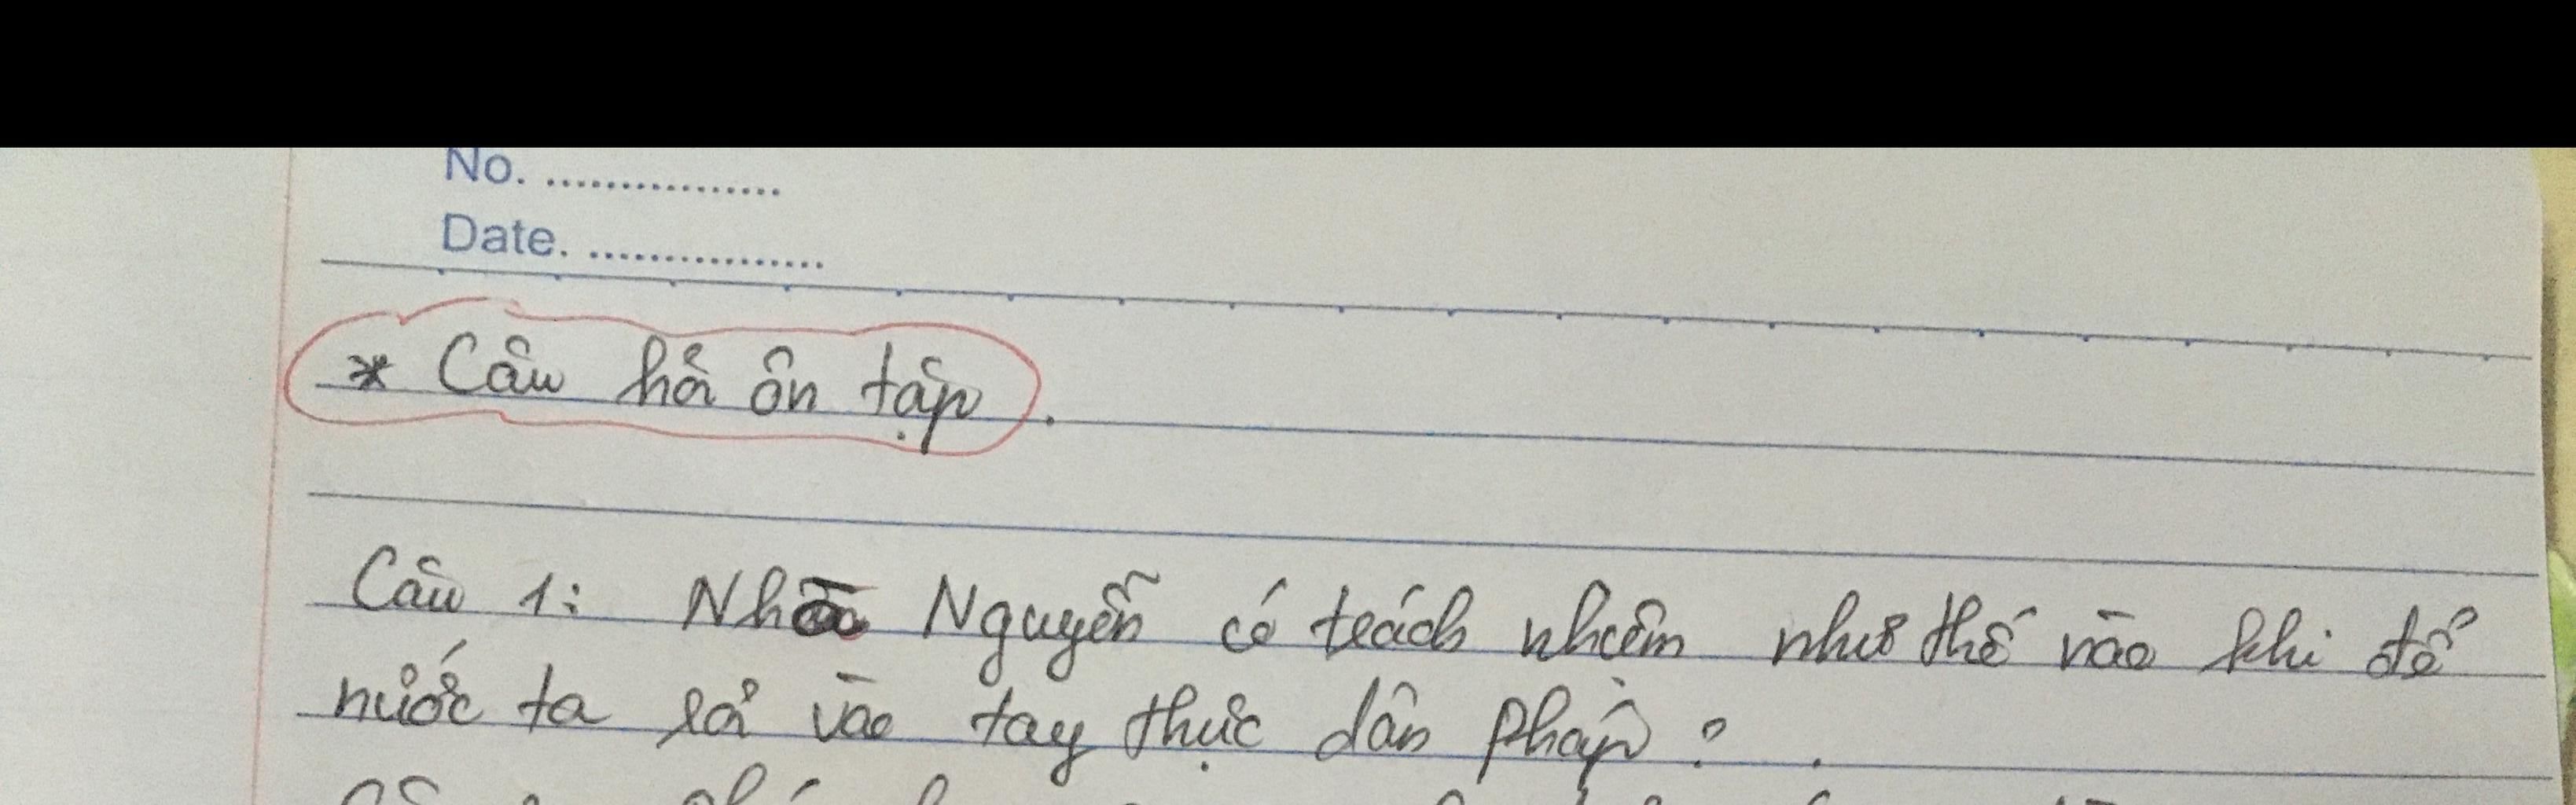 No. ................
Date. ................
* Câu hỏi ôn tập.
Câu 1: Nhà Nguyễn có trách nhiệm như thế nào khi để
nước ta rơi vào tay thực dân Pháp?.